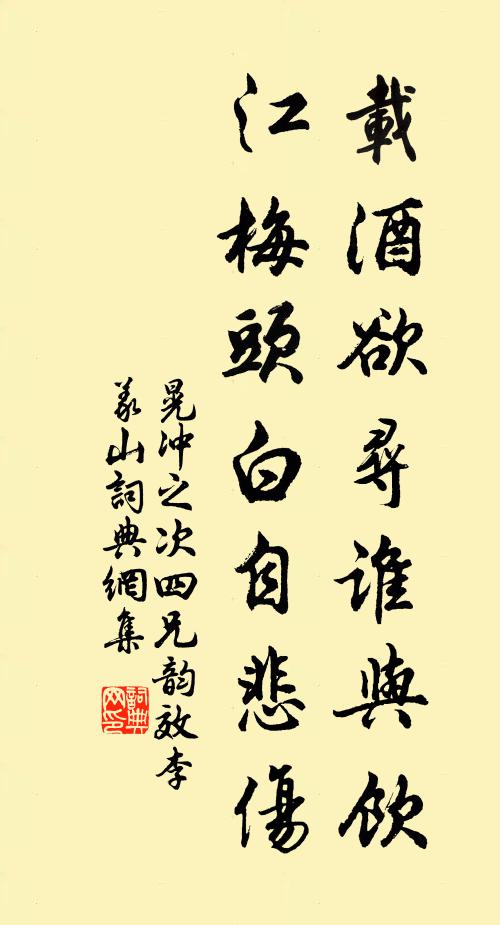 載酒欲尋誰與飲
江梅頭白自悲傷
晃沖之次四兄韵效李
義山詞典網集
詞典
网印